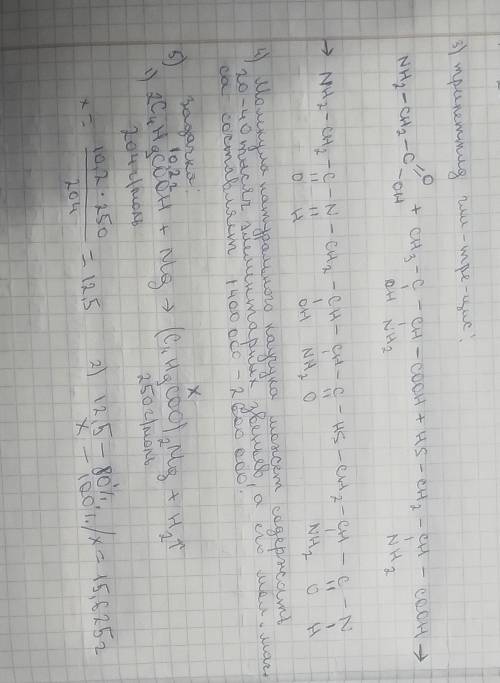 3) трипептид гли-тре-цис:
NH2-CH2-C-OH + CH3-C-CH-COOH + HS-CH2-CH-COOH →
O OH NH2 NH2
→ NH2-CH2-C-N-CH2-CH-CH-C-HS-CH2-CH-C-N
O H OH NH2 O NH2 O H
4) Молекула натурального каучука может содержать
20-40 тысяч элементарных звеньев, а его мол. мас-
са составляет 1400 000 - 2600 000.
5) Задачка:
10,2г x
1) 2C4H9COOH + Mg → (C4H9COO)2Mg + H2↑
204 г/моль 250 г/моль
x = 10,2·250 / 204 = 12,5
2) 12,5 - 80%
x - 100% / x = 15,625г